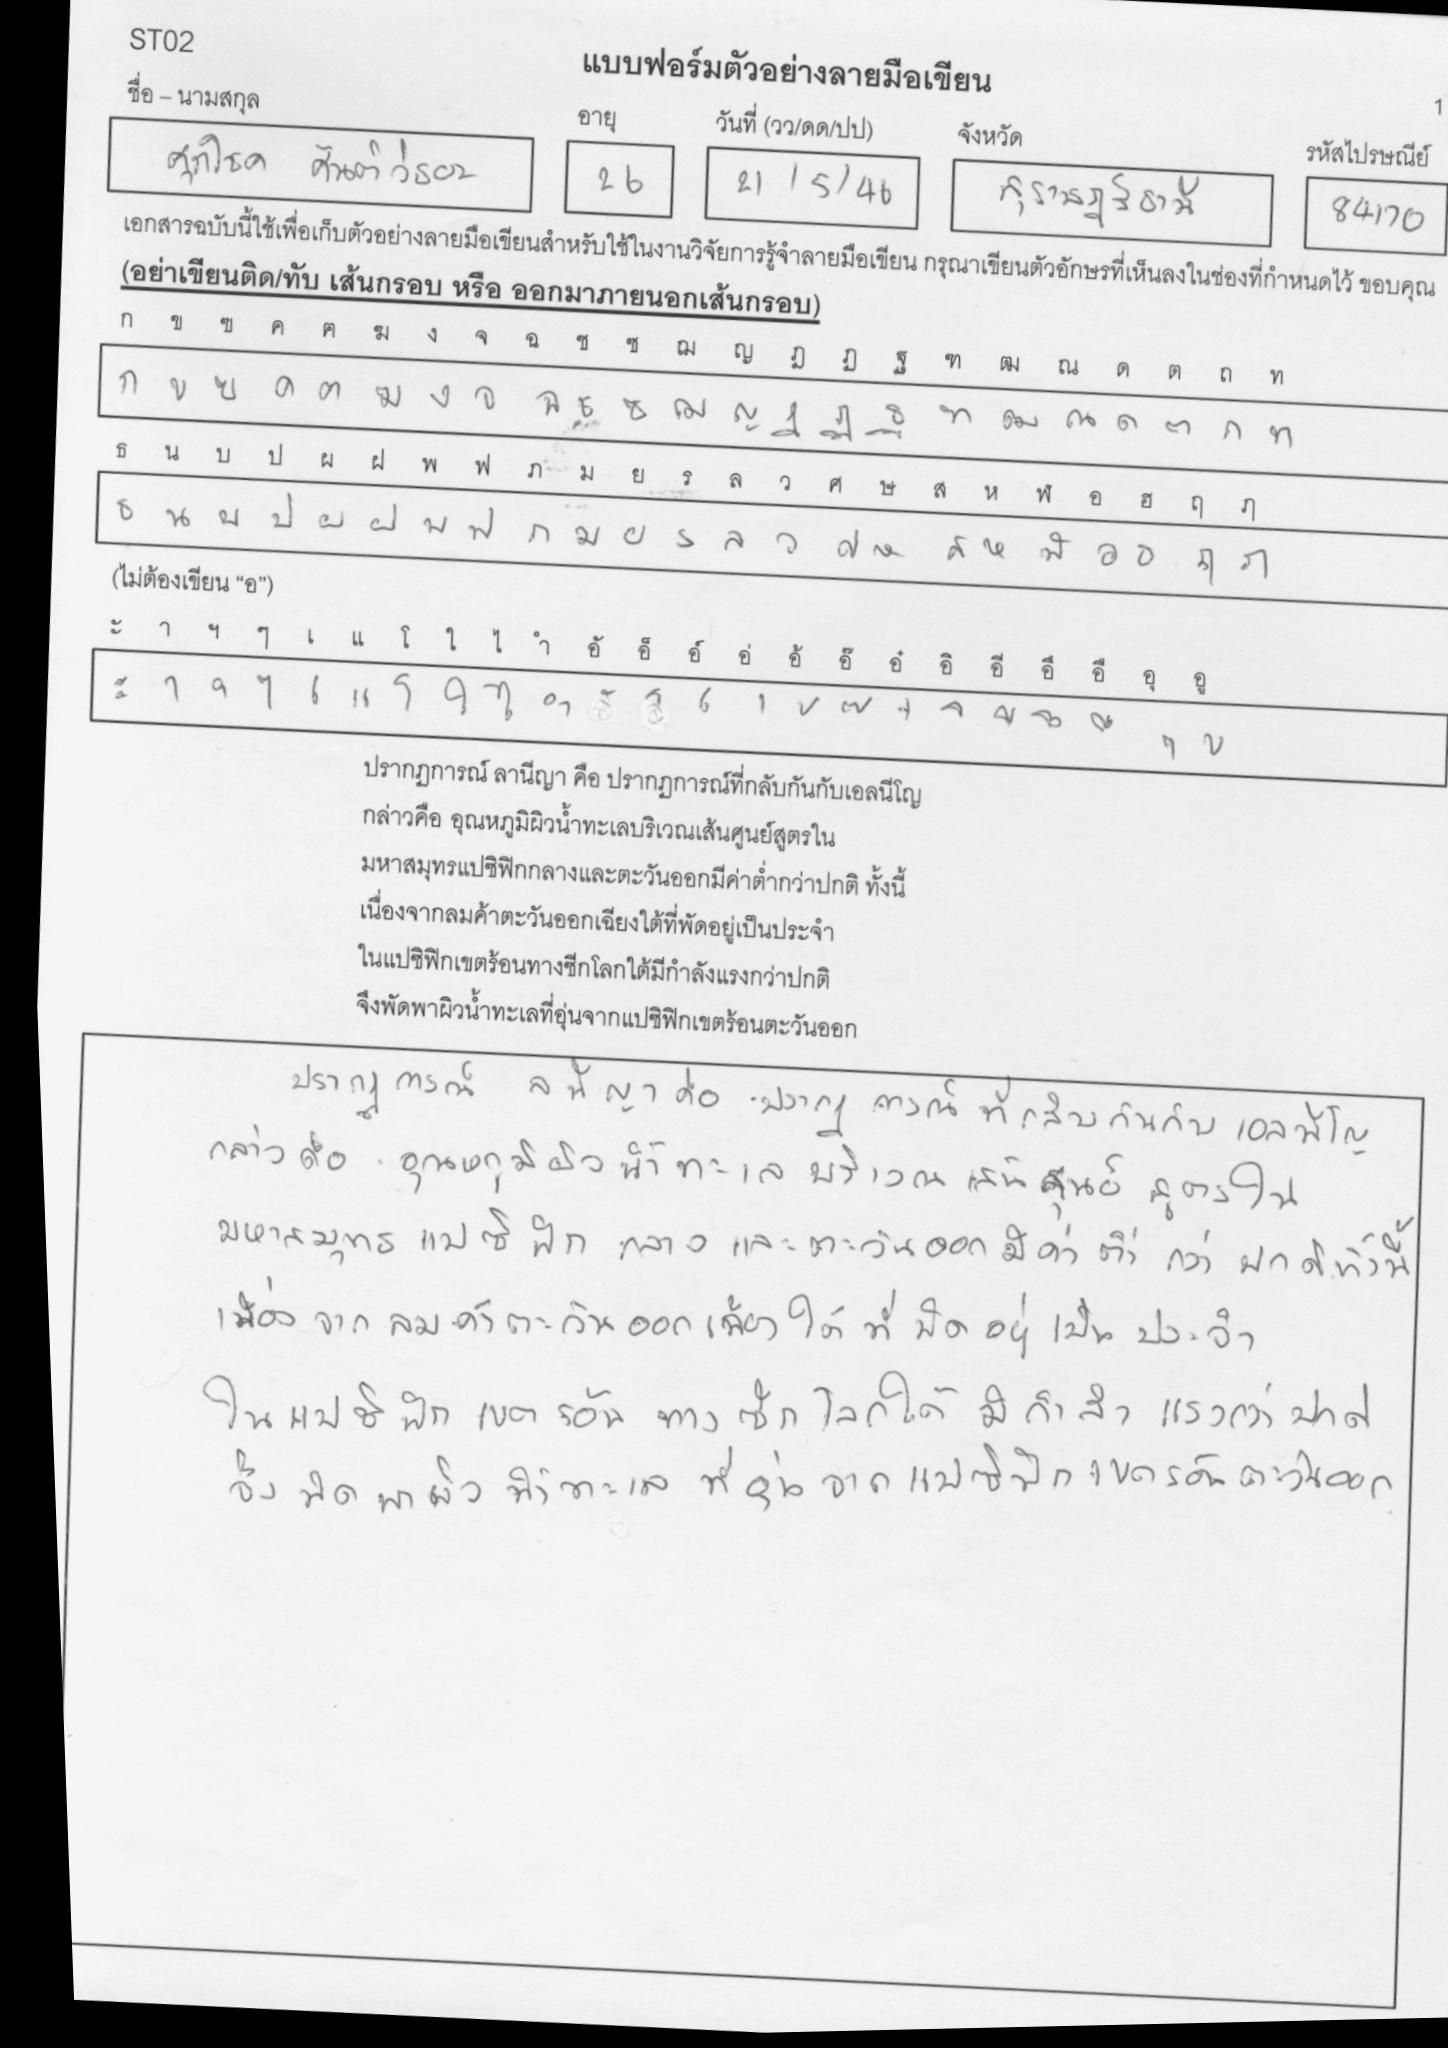 ST02
แบบฟอร์มตัวอย่างลายมือเขียน
1
ชื่อ – นามสกุล อายุ วันที่ (วว/ดด/ปป) จังหวัด รหัสไปรษณีย์
ศุภโชค 26 21/5/46 สุราษฎร์ธานี 84170
เอกสารฉบับนี้ใช้เพื่อเก็บตัวอย่างลายมือเขียนสำหรับใช้ในงานวิจัยการรู้จำลายมือเขียน กรุณาเขียนตัวอักษรที่เห็นลงในช่องที่กำหนดไว้ ขอบคุณ
(อย่าเขียนติด/ทับ เส้นกรอบ หรือ ออกมาภายนอกเส้นกรอบ)
ก ข ฃ ค ฅ ฆ ง จ ฉ ช ซ ฌ ญ ฎ ฏ ฐ ฑ ฒ ณ ด ต ถ ท
ก ข ฃ ค ฅ ฆ ง จ ฉ ช ซ ฌ ญ ฎ ฏ ฐ ฑ ฒ ณ ด ต ถ ท
ธ น บ ป ผ ฝ พ ฟ ภ ม ย ร ล ว ศ ษ ส ห ฬ อ ฮ ฤ ฦ
ธ น บ ป ผ ฝ พ ฟ ภ ม ย ร ล ว ศ ษ ส ห ฬ อ ฮ ฤ ฦ
(ไม่ต้องเขียน “อ”)
ะ า ฯ ๆ เ แ โ ใ ไ ำ อั อ็ อ์ อ่ อ้ อ๊ อ๋ อิ อี อึ อื อุ อู
ะ า ฯ ๆ เ แ โ ใ ไ ำ ั ็ ์ ่ ้ ๊ ๋ ิ ี ึ ื ุ ู
ปรากฏการณ์ ลานีญา คือ ปรากฏการณ์ที่กลับกันกับเอลนีโญ
กล่าวคือ อุณหภูมิผิวน้ำทะเลบริเวณเส้นศูนย์สูตรใน
มหาสมุทรแปซิฟิกกลางและตะวันออกมีค่าต่ำกว่าปกติ ทั้งนี้
เนื่องจากลมค้าตะวันออกเฉียงใต้ที่พัดอยู่เป็นประจำ
ในแปซิฟิกเขตร้อนทางซีกโลกใต้มีกำลังแรงกว่าปกติ
จึงพัดพาผิวน้ำทะเลที่อุ่นจากแปซิฟิกเขตร้อนตะวันออก
ปรากฏการณ์ ลนีญา คือ ปรากฏการณ์ ที่กลับกันกับ เอลนีโญ
กล่าวคือ อุณหภูมิผิวน้ำทะเล บริเวณ เส้นศูนย์ สูตรใน
มหาสมุทร แปซิฟิก กลาง และตะวันออก มีค่า ต่ำ กว่า ปกติ ทั้งนี้
เนื่องจาก ลมค้าตะวันออกเฉียงใต้ ที่ พัด อยู่ เป็น ประจำ
ในแปซิฟิก เขตร้อน ทาง ซีก โลกใต้ มี กำลัง แรงกว่า ปกติ
จึง พัด พาผิว น้ำทะเล ที่ อุ่น จาก แปซิฟิก เขตร้อนตะวันออก